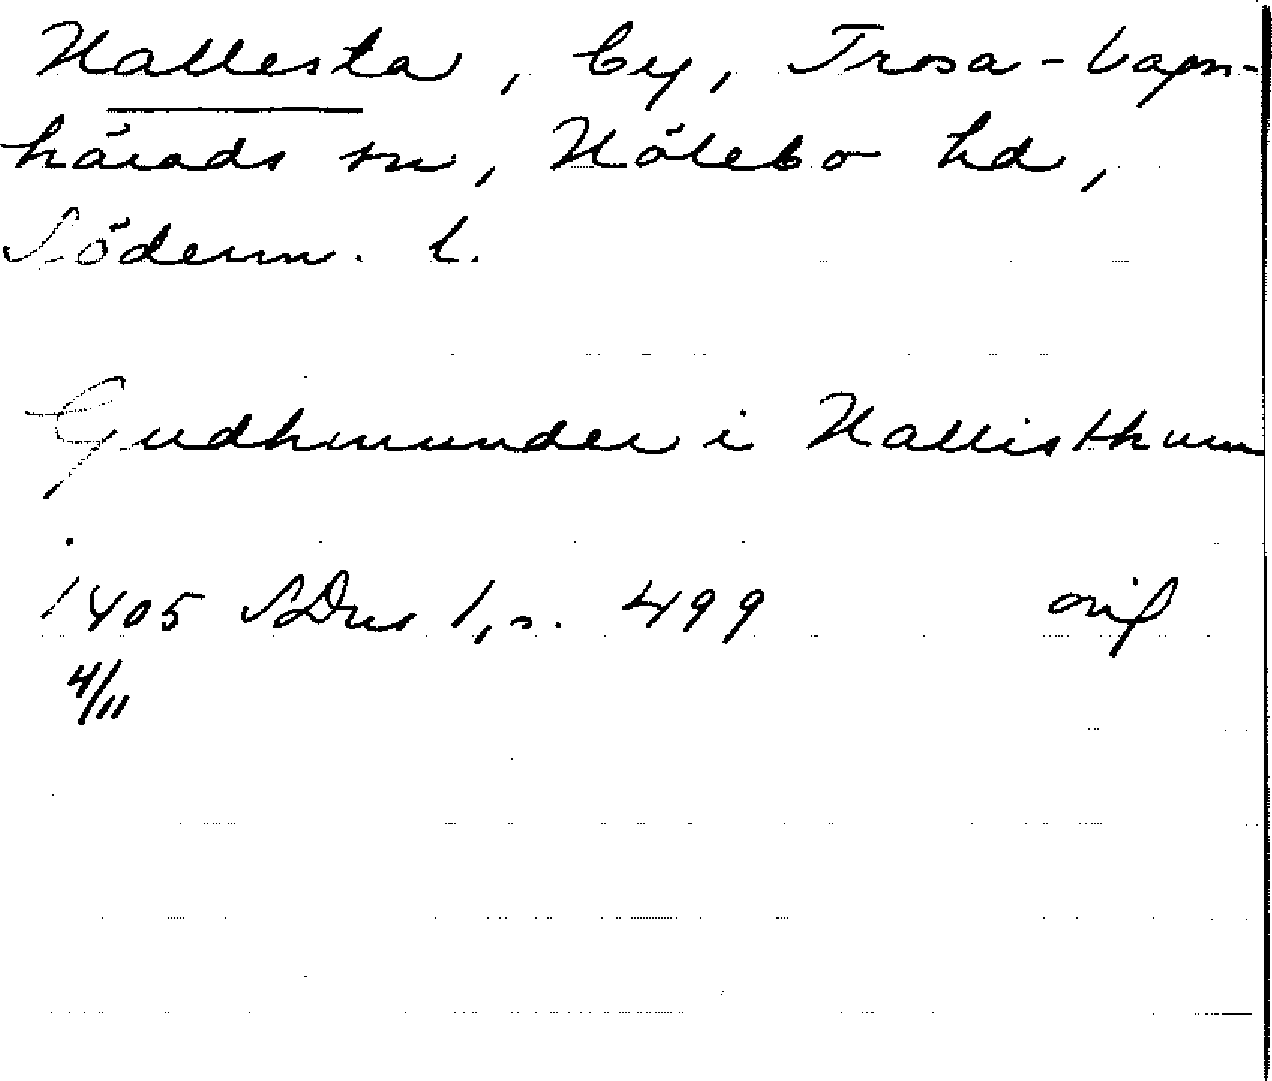 Hallesta, by, Trosa-Vagn-
härads sn, Hölebo hd,
Söderm. l.
Gudhmunder i Hallisthum
1405 SDns 1, s. 499 orig
4/11